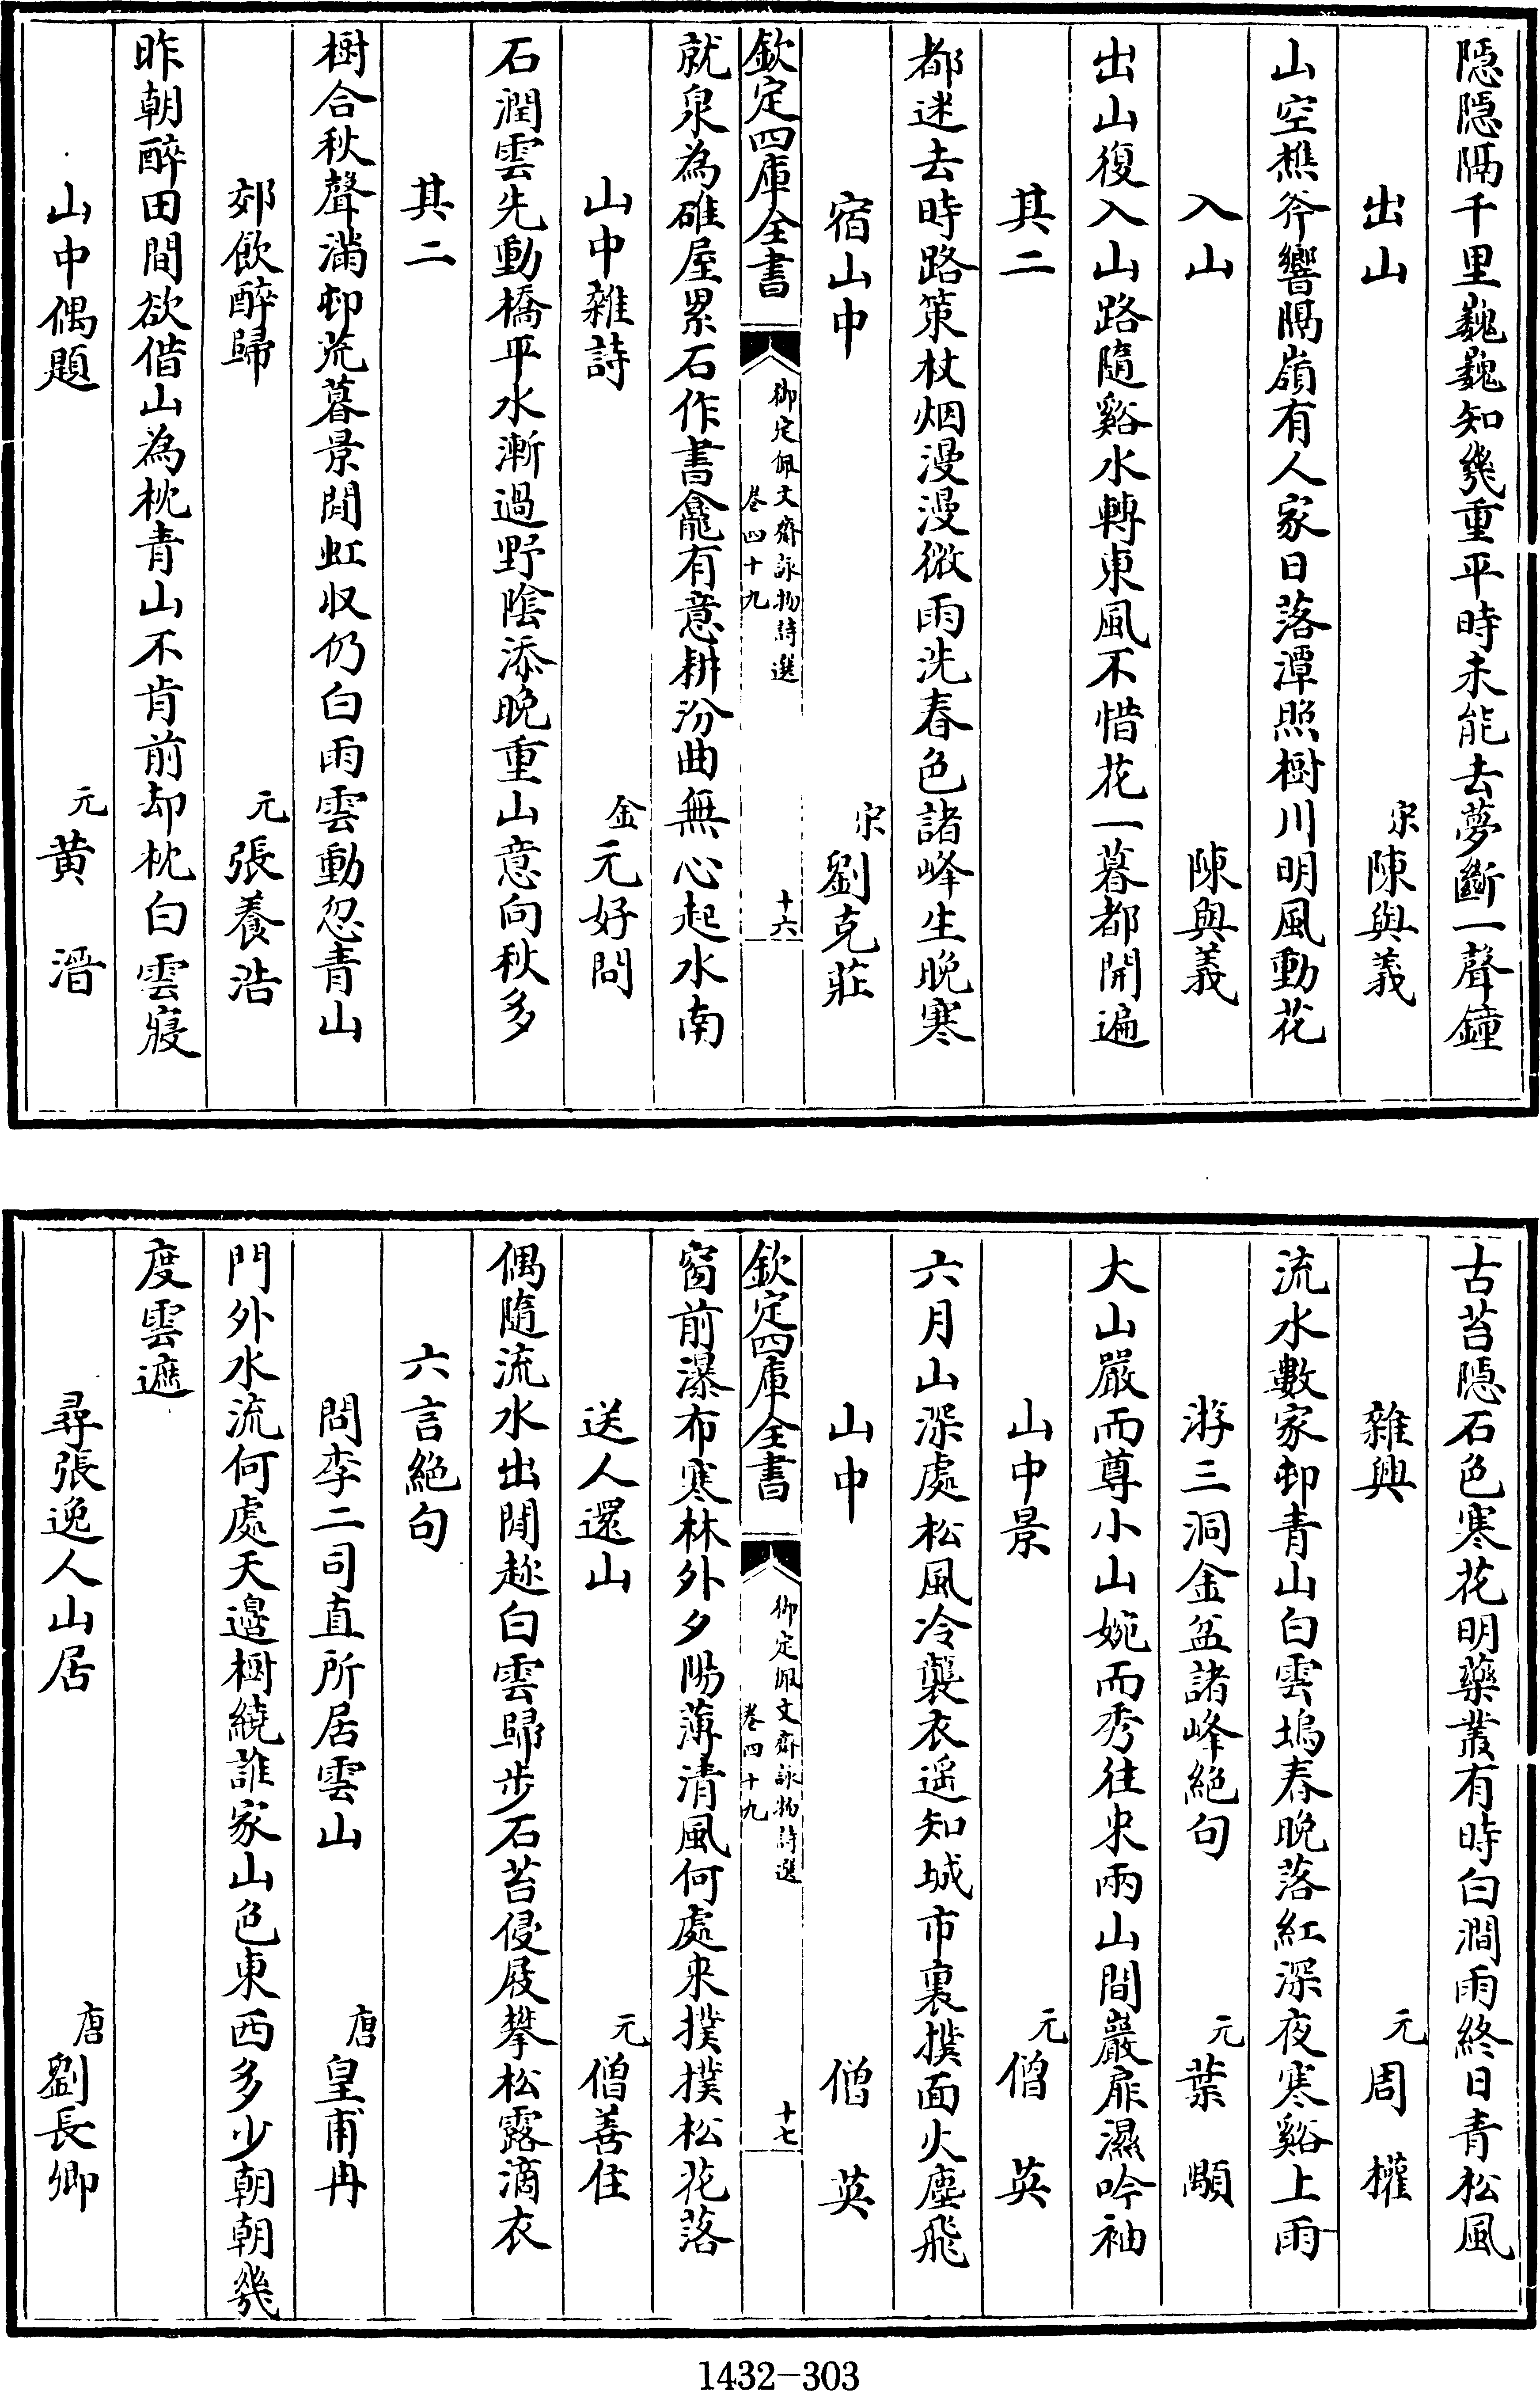 隠隠隔千里巍巍知幾重平時未能去夢斷一聲鐘
出山　宋陳與義
山空樵斧響隔嶺有人家日落潭照樹川明風動花
入山　陳與義
出山復入山路隨谿水轉東風不惜花一暮都開遍
其二
都迷去時路策杖烟漫漫微雨洗春色諸峰生晚寒
宿山中　宋劉克莊
欽定四庫全書　御定佩文齋詠物詩選　卷四十九　十六
就泉為碓屋累石作書龕有意耕汾曲無心起水南
山中雜詩　金元好問
石潤雲先動橋平水漸過野陰添晚重山意向秋多
其二
樹合秋聲滿邨荒暮景閒虹収仍白雨雲動忽青山
郊飲醉歸　元張養浩
昨朝醉田間欲借山為枕青山不肯前却枕白雲寢
山中偶題　元黃溍
古苔隠石色寒花明藥叢有時白澗雨終日青松風
雜興　元周權
流水數家邨青山白雲塢春晚落紅深夜寒谿上雨
游三洞金盆諸峰絕句　元葉顒
大山嚴而尊小山婉而秀往來兩山間巖扉濕吟袖
山中景　元僧英
六月山深處松風冷襲衣遥知城市裏撲面火塵飛
山中　僧英
欽定四庫全書　御定佩文齋詠物詩選　卷四十九　十七
窗前瀑布寒林外夕陽薄清風何處來撲撲松花落
送人還山　元僧善住
偶隨流水出閒趂白雲歸步石苔侵屐攀松露滴衣
六言絕句
問李二司直所居雲山　唐皇甫冉
門外水流何處天邉樹繞誰家山色東西多少朝朝幾
度雲遮
尋張逸人山居　唐劉長卿
1432-303